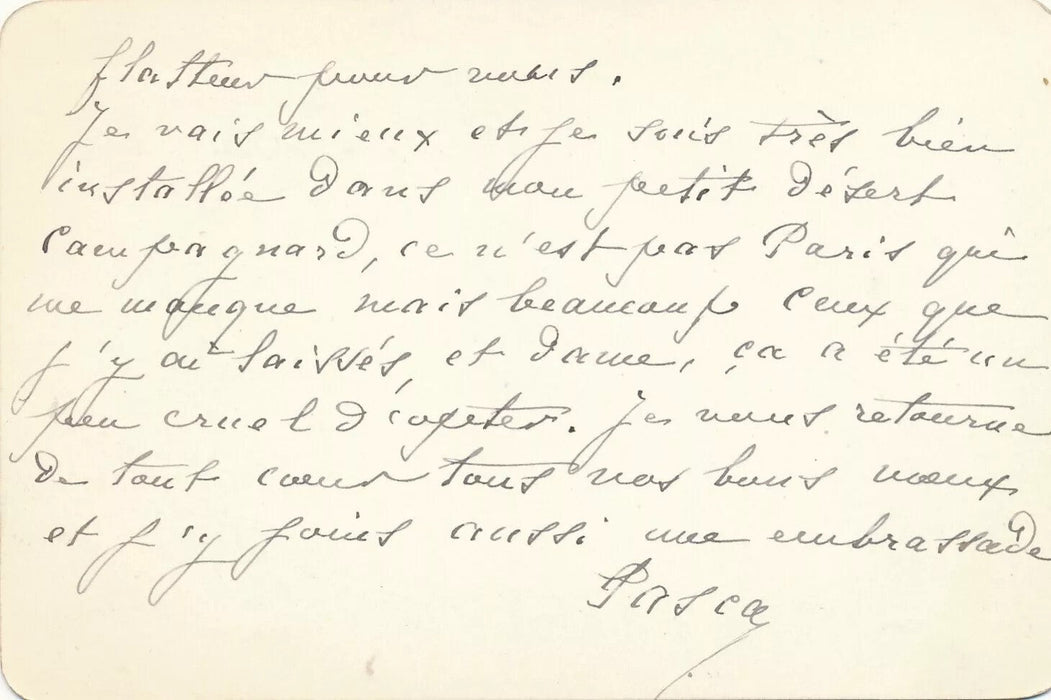 flatteur pour nous.
Je vais mieux et je suis très bien
installée dans mon petit désert
Campagnard, ce n'est pas Paris qui
me manque mais beaucoup ceux que
j'y ai laissés, et dame, ça a été un
peu cruel d'opter. Je vous retourne
de tout cœur tous vos bons vœux
et j'y joins aussi une embrassade
Pasca